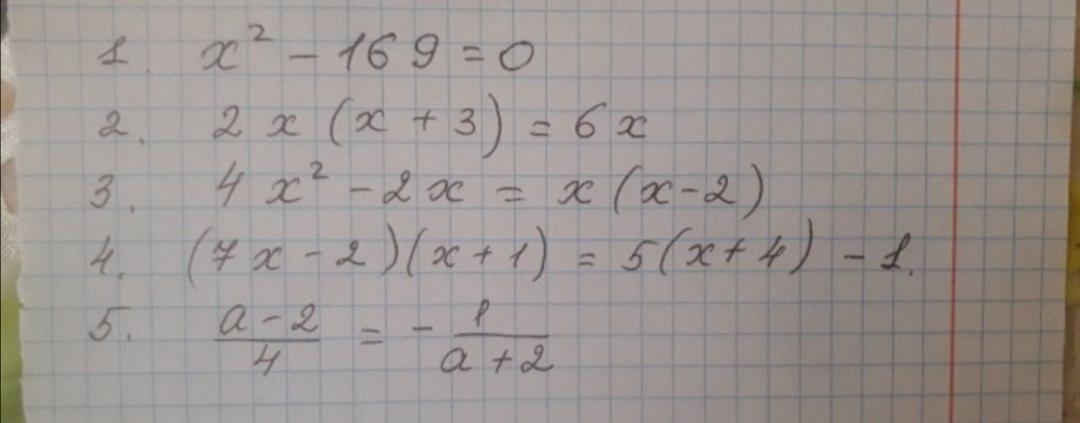 1. x² - 169 = 0
2. 2x (x + 3) = 6x
3. 4x² - 2x = x (x - 2)
4. (7x - 2)(x + 1) = 5(x + 4) - 1.
5. (a - 2)/4 = - 1/(a + 2)